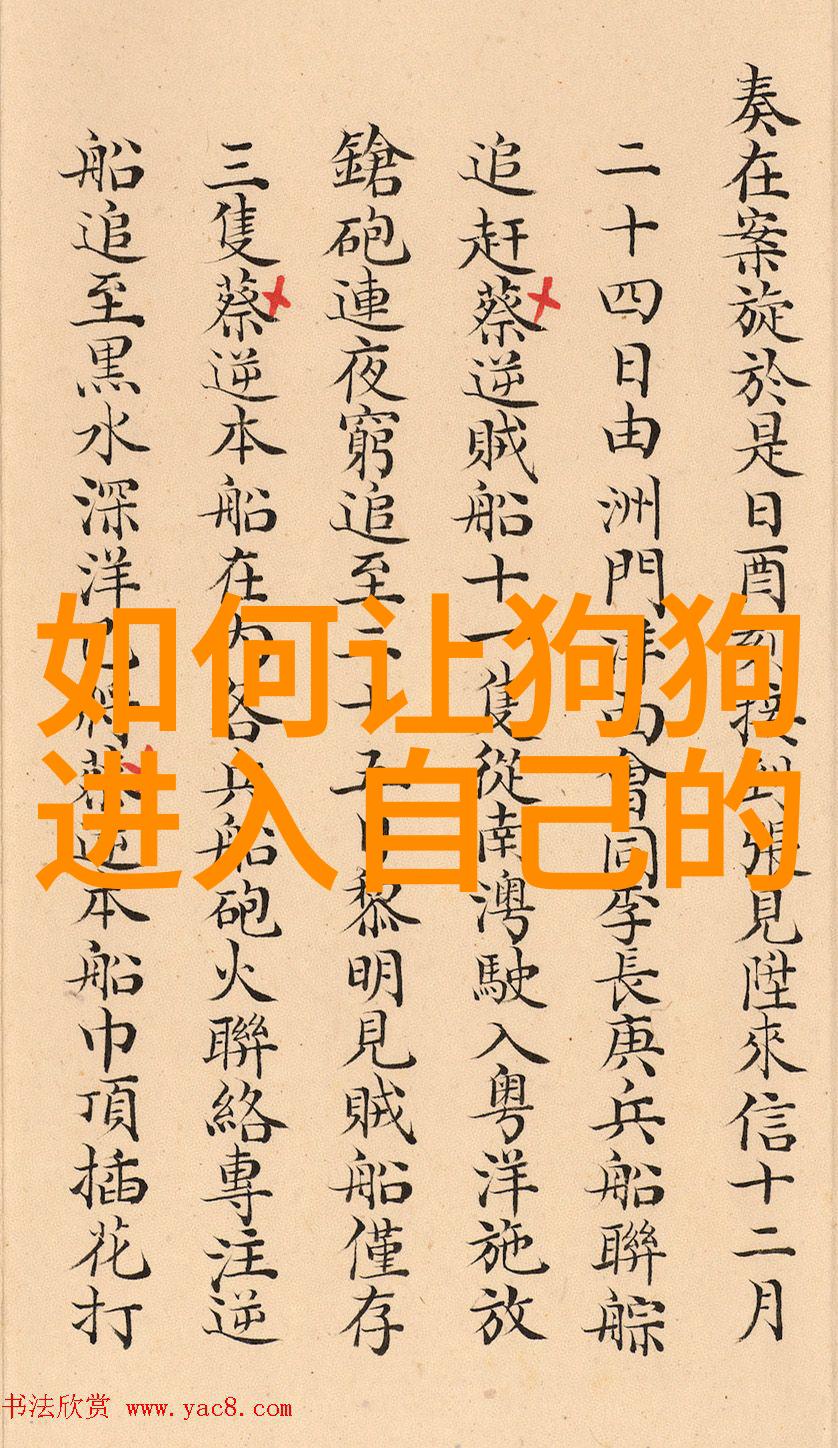 奏在案旋於是日酉刻接到張見陞來信十二月
二十四日由洲門洋面會同李長庚兵船聯䑸
追赶蔡逆賊船十一隻從南澳駛入粤洋施放
鎗砲連夜窮追至二十五日黎明見賊船僅存
三隻蔡逆本船在内各兵船砲火聯絡專注逆
船追至黒水深洋已將蔡逆本船巾頂插花打
如何让狗狗
进入自己的
书法欣赏 www.yac8.com